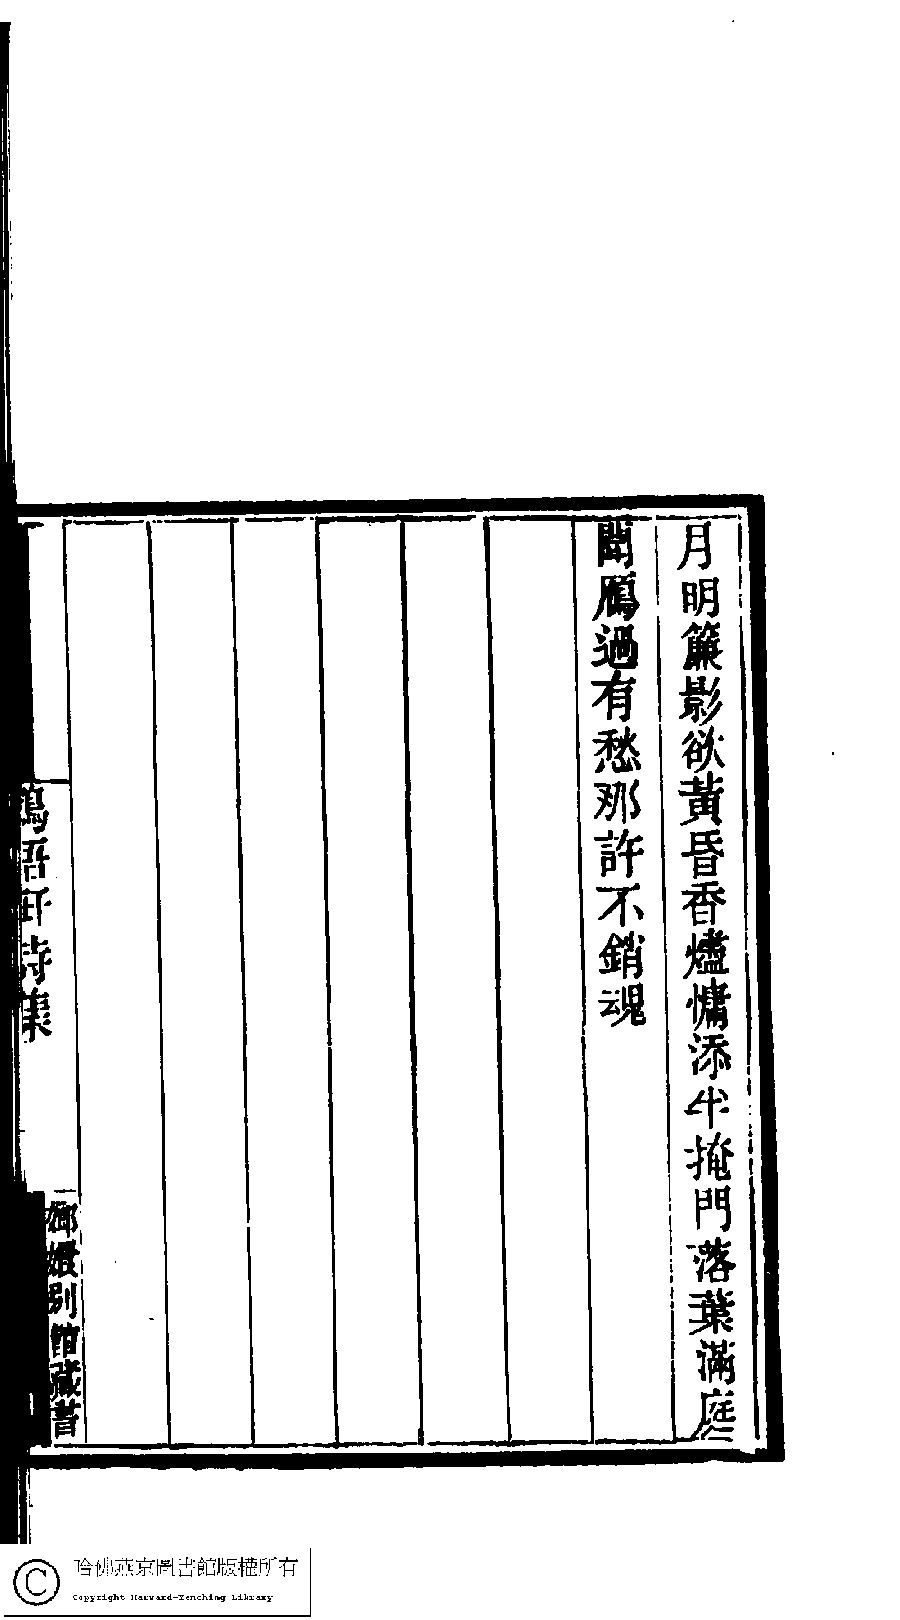 月明簾影欲黃昏香爐慵添半掩門落葉滿庭
聞鴈過有愁那許不銷魂
鴻語軒詩集
嫏嬛別館藏書
哈佛燕京圖書館版權所有
Copyright Harvard-Yenching Library